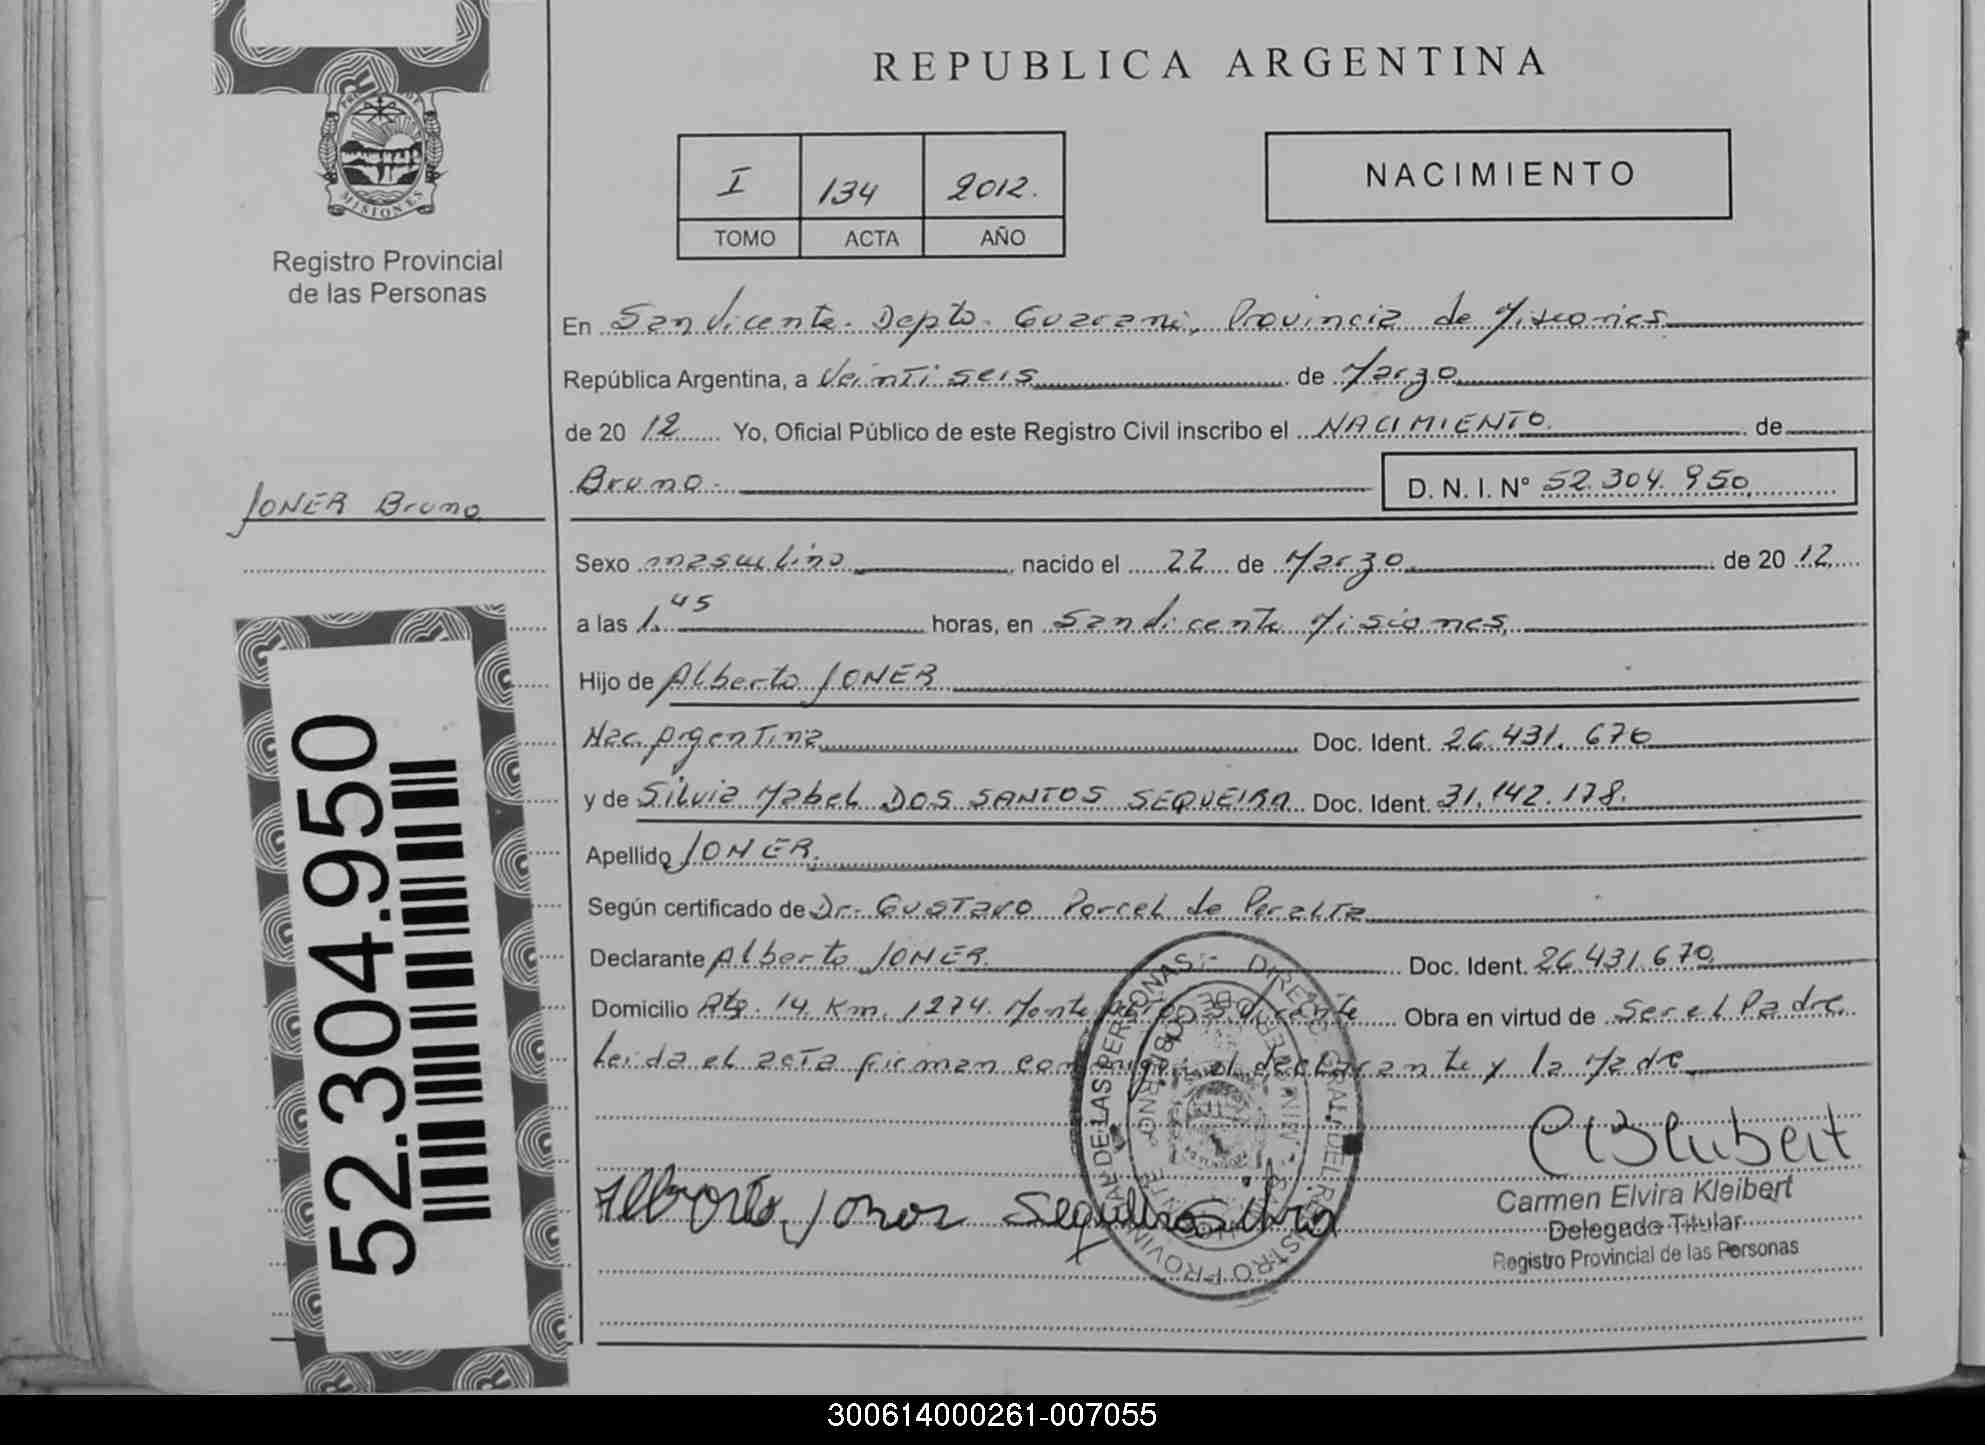 REPUBLICA ARGENTINA
I 134 2012.
TOMO ACTA AÑO
NACIMIENTO
MISIONES
Registro Provincial
de las Personas
En San Vicente. Depto. Guarani, Provincia de Misiones
República Argentina, a Veintiseis de Marzo
de 2012 Yo, Oficial Público de este Registro Civil inscribo el NACIMIENTO de
Bruno.- D. N. I. N° 52.304.950
JONER Bruno
Sexo masculino nacido el 22 de Marzo de 2012
a las 1.45 horas, en San Vicente Misiones,
Hijo de Alberto JONER
Nac. Argentina Doc. Ident. 26.431.670
y de Silvia Mabel DOS SANTOS SEQUEIRA Doc. Ident. 31.142.178.
Apellido JONER.
Según certificado de Dr. GUSTAVO Porcel de Peralta
Declarante Alberto JONER. Doc. Ident. 26.431.670
Domicilio Rta. 14 Km. 1274. Monte Obra en virtud de Ser el Padre
Leida el acta firman conmigo el declarante y la Madre
52.304.950
Alberto Joner Sequeira Silvia
Carmen Elvira Kleibert
Delegada Titular
Registro Provincial de las Personas
300614000261-007055